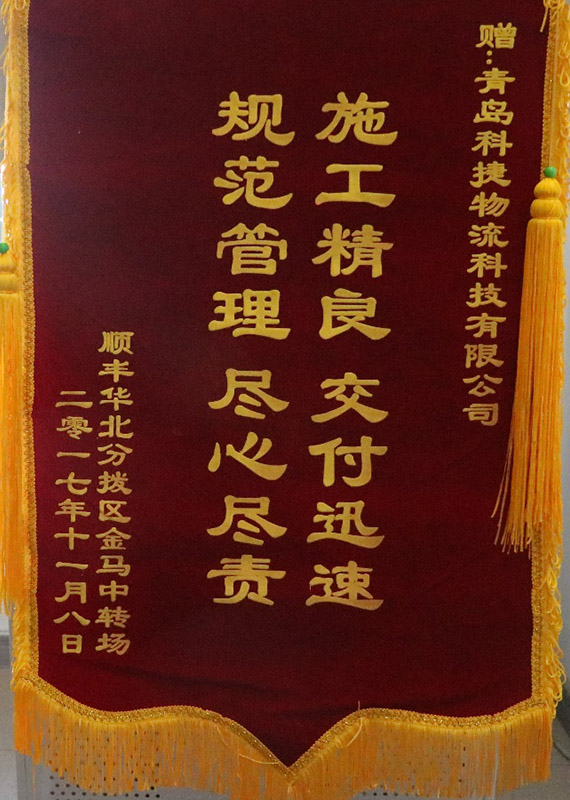 赠:青岛科捷物流科技有限公司
施工精良 交付迅速
规范管理 尽心尽责
顺丰华北分拨区金马中转场
二零一七年十一月八日